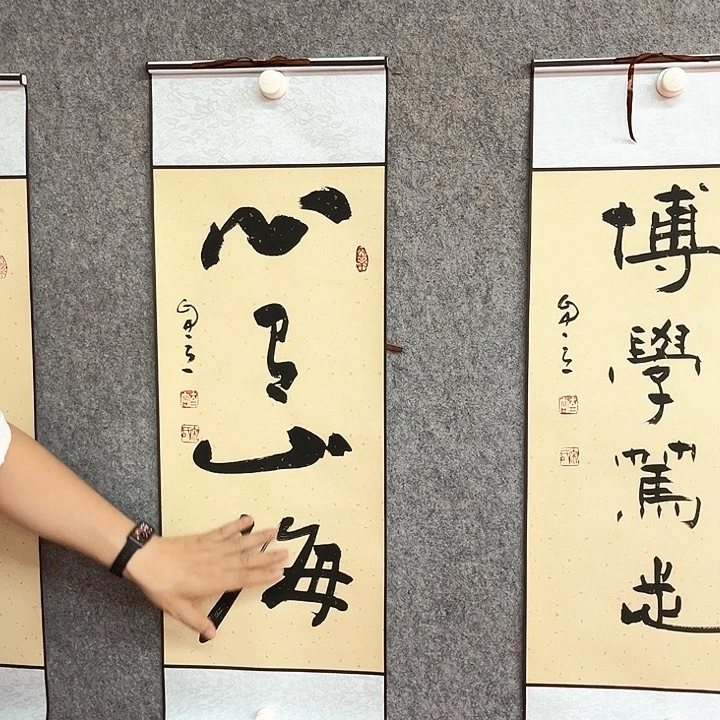 心有山海
博學篤志